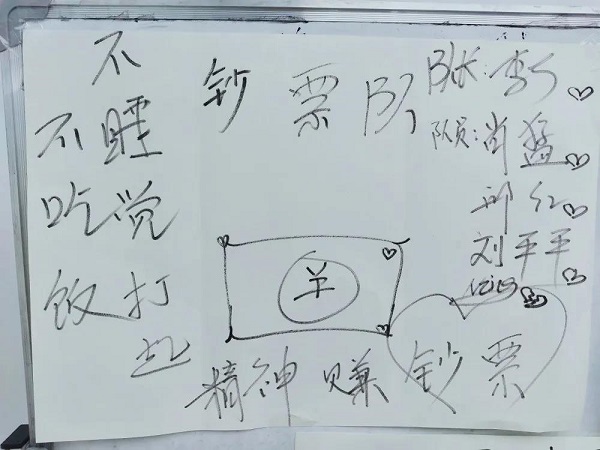 钞票队
队长:李
队员:肖猛
邱红
刘平平
不睡觉打起
不吃饭
¥
精神赚钞票